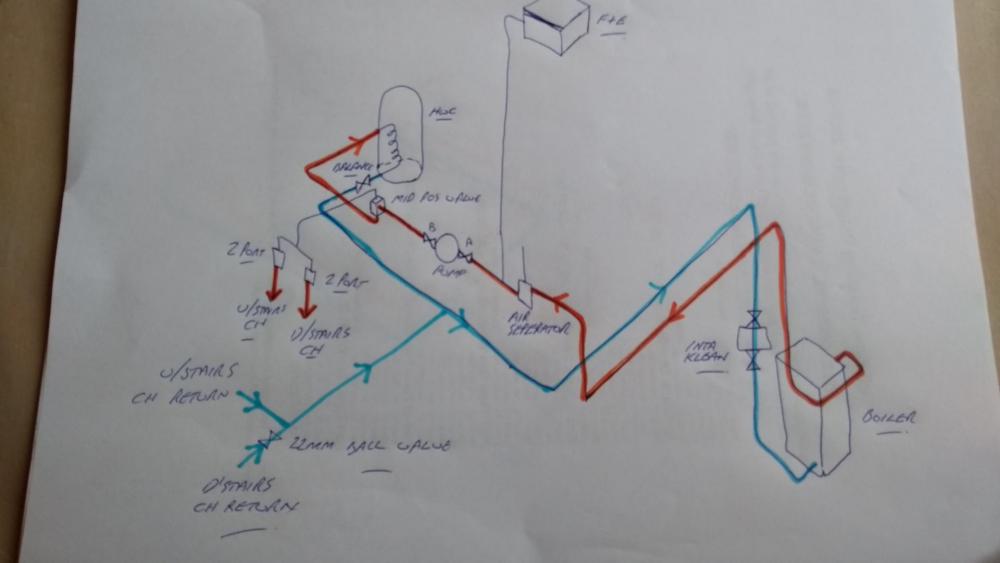 F+E
HWC
BALANCE
MID POS VALVE
B
A
PUMP
2 PORT
2 PORT
U/STAIRS
CH
D/STAIRS
CH
AIR
SEPERATOR
INTA
KLEAN
BOILER
U/STAIRS
CH RETURN
22MM BALL VALVE
D'STAIRS
CH RETURN